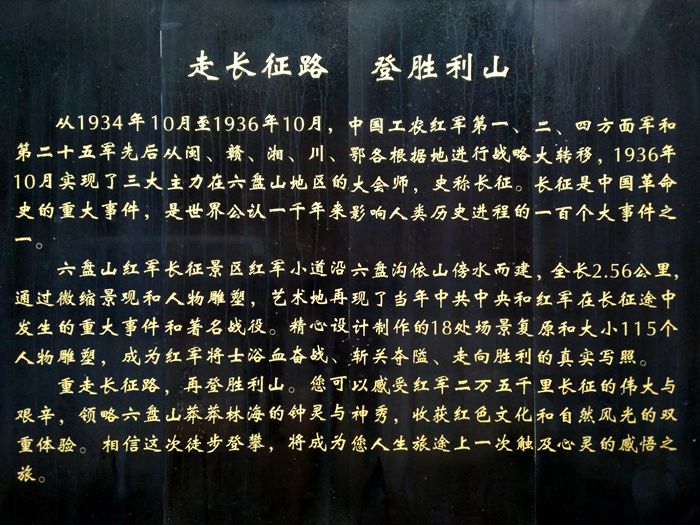 走长征路 登胜利山
从1934年10月至1936年10月，中国工农红军第一、二、四方面军和
第二十五军先后从闽、赣、湘、川、鄂各根据地进行战略大转移，1936年
10月实现了三大主力在六盘山地区的大会师，史称长征。长征是中国革命
史的重大事件，是世界公认一千年来影响人类历史进程的一百个大事件之
一。
六盘山红军长征景区红军小道沿六盘沟依山傍水而建，全长2.56公里，
通过微缩景观和人物雕塑，艺术地再现了当年中共中央和红军在长征途中
发生的重大事件和著名战役。精心设计制作的18处场景复原和大小115个
人物雕塑，成为红军将士浴血奋战、斩关夺隘、走向胜利的真实写照。
重走长征路，再登胜利山。您可以感受红军二万五千里长征的伟大与
艰辛，领略六盘山莽莽林海的钟灵与神秀，收获红色文化和自然风光的双
重体验。相信这次徒步登攀，将成为您人生旅途上一次触及心灵的感悟之
旅。